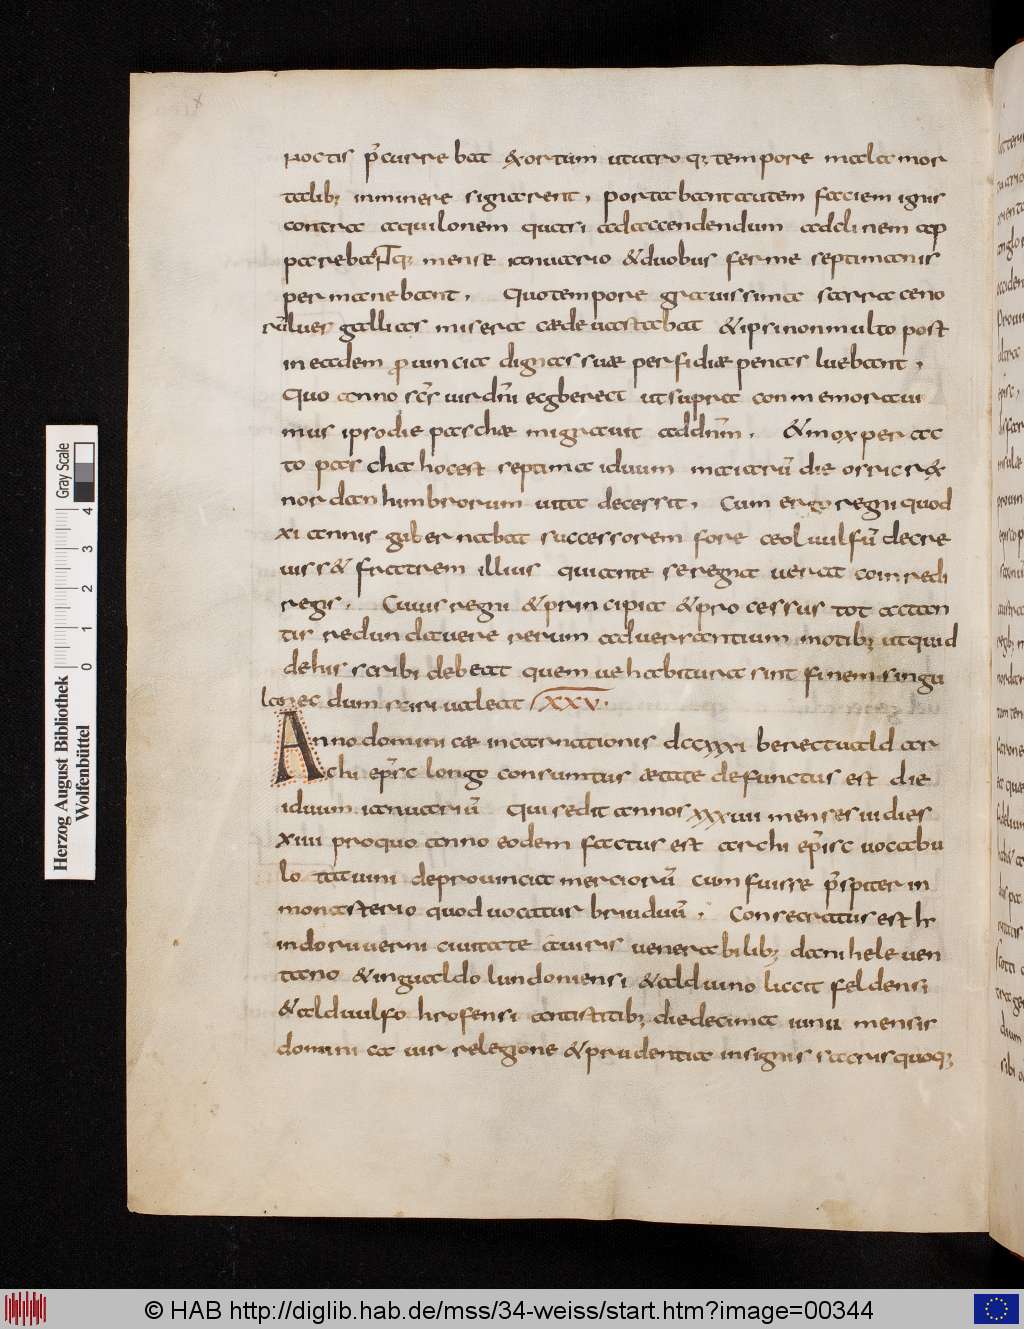 noctis p̄currebat &ortum ututroq; tempore mala mor
talib; inminere signarent, portabant autem faciem ignis
contra aquilonem quasi adaccendendum adclinem ap
parebantq; mense ianuario &duobus ferme septimanis
permanebant, Quo tempore grauissima sarraceno
rū lues gallias misera cæde uastabat &ipsi nonmulto post
in eadem prouincia dignas suæ perfidiæ penas luebant,
Quo anno scs̄ uir dn̄i ecgberect ut supra conmemoraui
mus ipso die paschæ migrauit ad dn̄m. &mox perac
to pascha hoc est septima iduum maiarū die osric r&
nordanhimbrorum uita decessit, Cum ergo regni quod
xi annis gubernabat successorem fore ceoluulfū decre
uiss& fratrem illius qui ante se regnauerat coinredi
regis. Cuius regni &principia &processus tot actan
tis redundauere rerum aduersantium motib; ut quid
de his scribi debeat quem ue habitura sint finem singu
la nec dum sciri ualeat XXV.
Anno dominicæ incarnationis dccxxxi berectuuald ar
chiepis̄c longo consumtus ætate defunctus est die
iduum ianuariū Qui sedit annos xxxuii menses ui dies
xiiii pro quo anno eodem factus est archiepis̄c uocabu
lo tatuuini de prouincia merciorū cum fuisse p̄spiter in
monasterio quod uocatur briuduū. Consecratus est hr
in doruuerni ciuitate a uiris uenerabilib; danihele uen
tano &inguualdo lundoniensi &alduuino liccit feldensi
&alduulfo hrofensi antistitib; die decima iunii mensis
dominica uir relegione &prudentia insignis sacris quoq;
Herzog August Bibliothek
Wolfenbüttel
Gray Scale
0 1 2 3 4
© HAB http://diglib.hab.de/mss/34-weiss/start.htm?image=00344